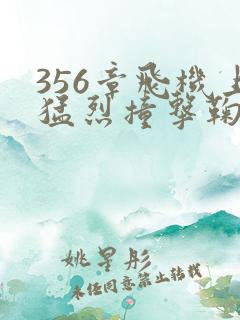 356章飛機上
猛烈撞擊鞠
姚星彤
未任同意禁止转载